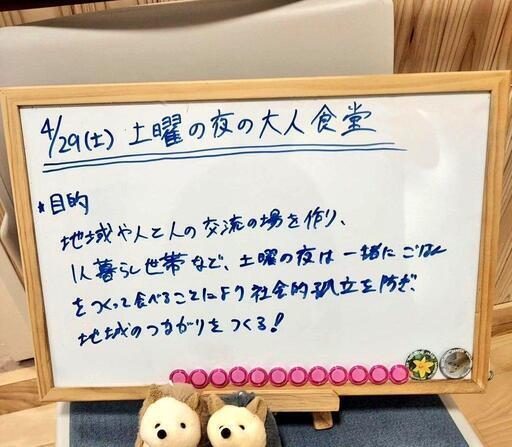 4/29(土) 土曜の夜の大人食堂
*目的
地域や人と人の交流の場を作り、
1人暮らし世帯など、土曜の夜は一緒にごはん
をつくって食べることにより社会的孤立を防ぎ、
地域のつながりをつくる!